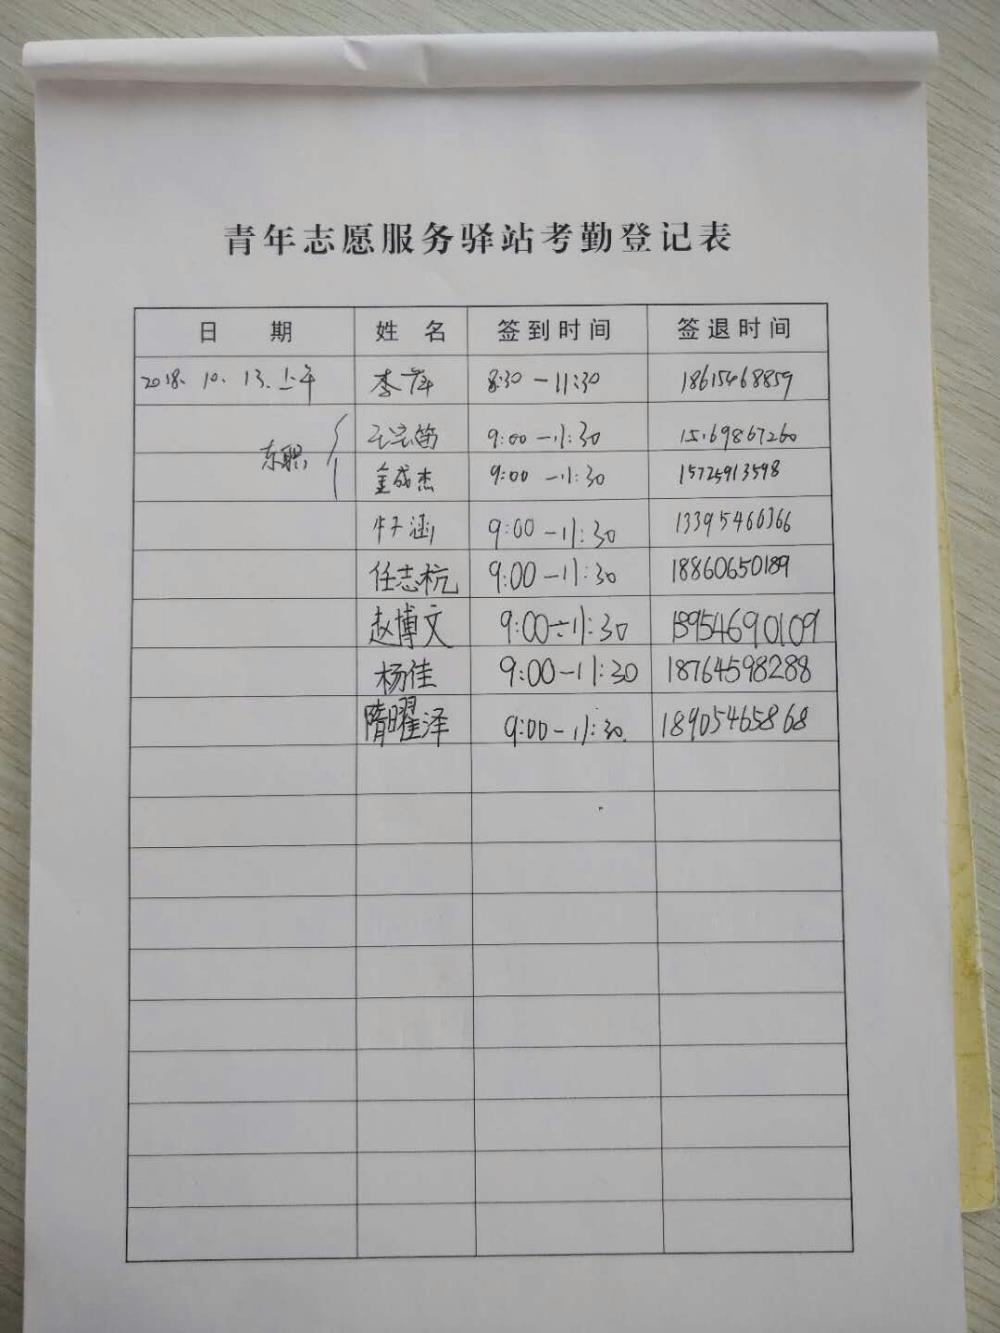 青年志愿服务驿站考勤登记表
日 期 姓 名 签到时间 签退时间
2018. 10. 13. 上午 李 8:30 - 11:30 18615468859
9:00 - 11:30 15169867260
东职 金成杰 9:00 - 11:30 15725913598
牛子涵 9:00 - 11:30 13395466366
任志杭 9:00 - 11:30 18860650189
赵博文 9:00 - 11:30 15954690109
杨佳 9:00 - 11:30 18764598288
隋曜泽 9:00 - 11:30. 18905465868